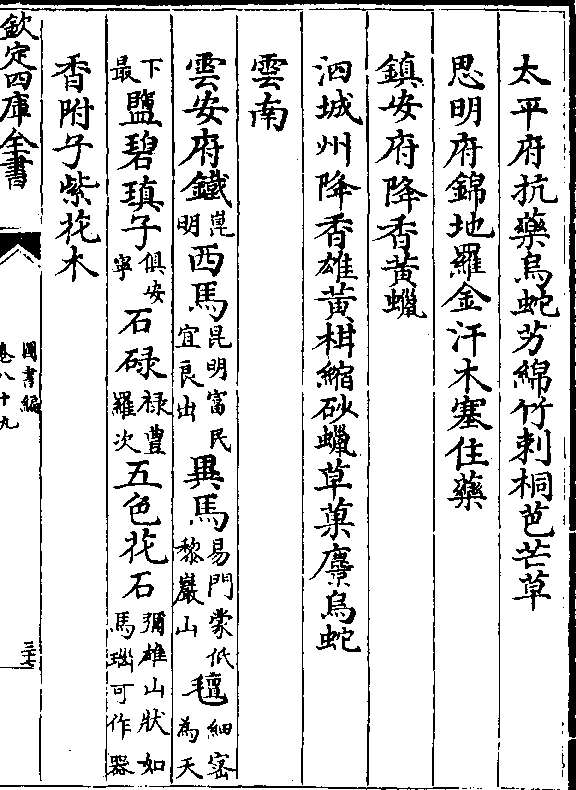 太平府抗藥烏蛇芀綿竹刺桐芭芒草
思明府錦地羅金汗木塞住藥
鎮安府降香黄蠟
泗城州降香雄黄柑縮砂蠟草菓麖烏蛇
雲南
雲安府鐵崑明西馬昆明富民宜良出異馬易門蒙低黎巖山氊細宻為天
下最鹽碧瑱子俱安寧石碌禄豊羅次五色花石彌雄山狀如馬瑙可作器
香附子紫花木
欽定四庫全書
圖書編
卷八十九
三十七